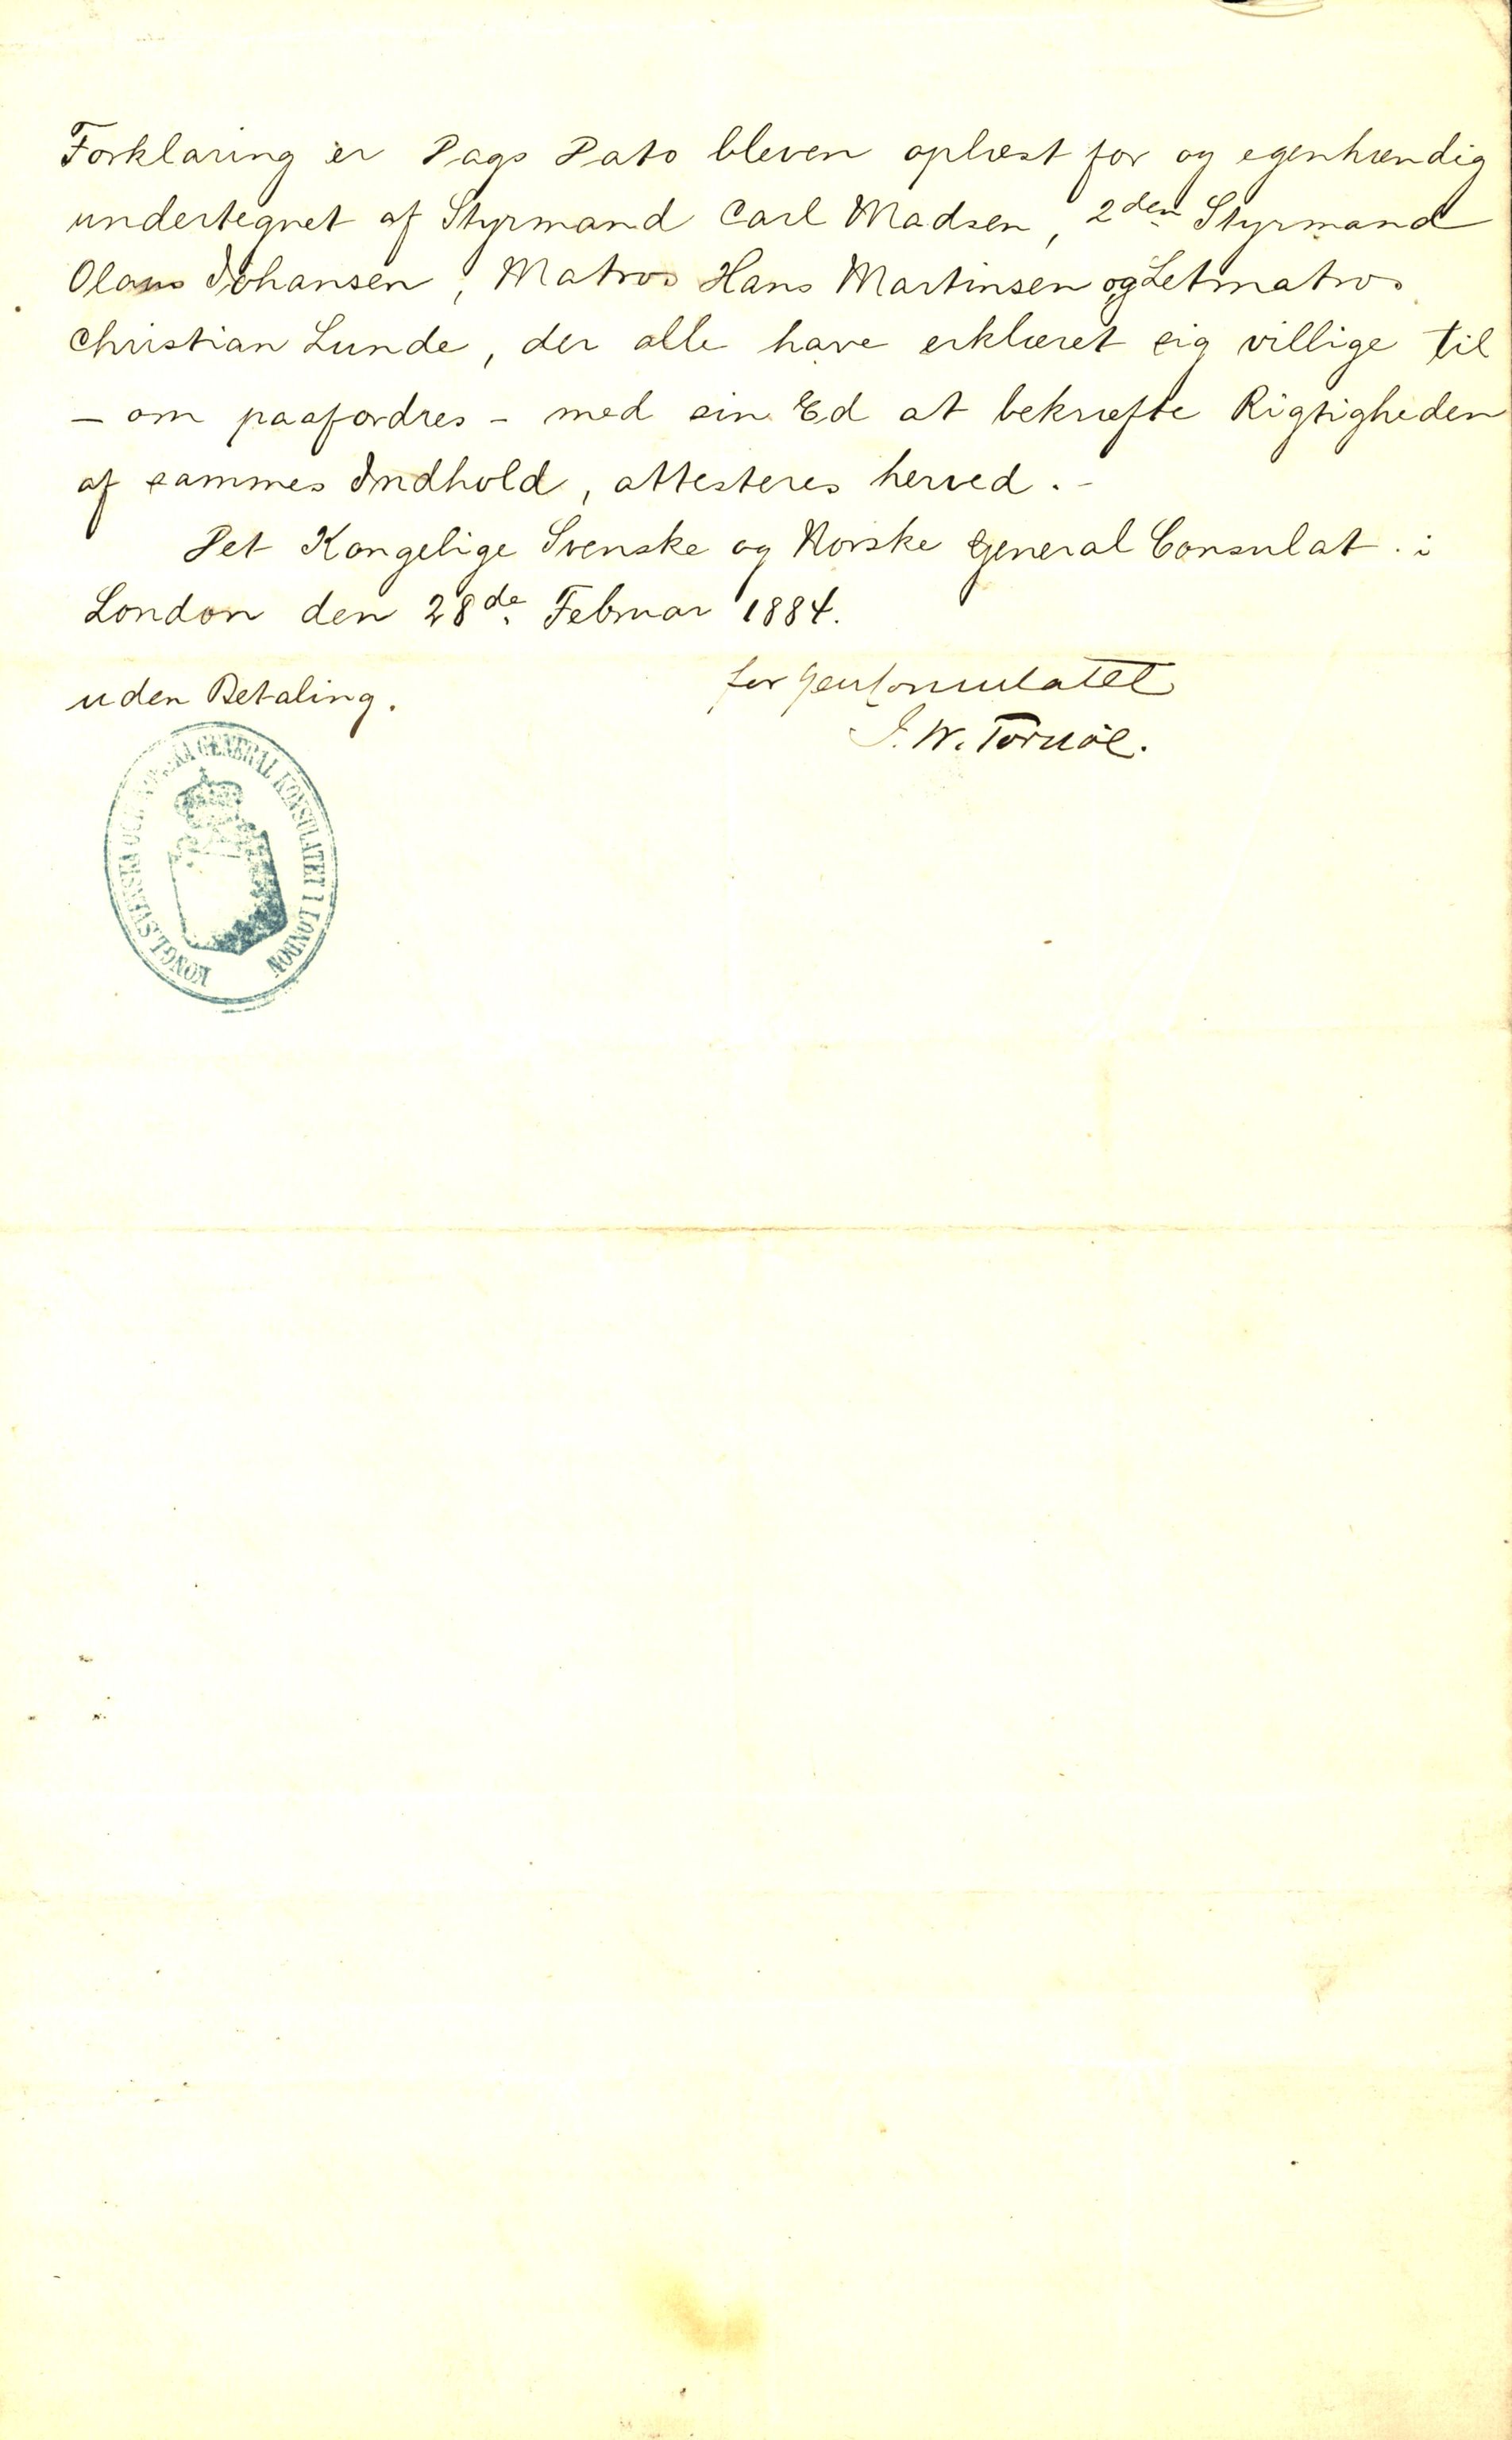 Forklaring er Dags Dato bleven oplæst for og egenhændig
undertegnet af Styrmand Carl Madsen, 2den Styrmand
Olaus Johansen, Matros Hans Martinsen og Letmatros
Christian Lunde, der alle have erklæret sig villige til
- om paafordres - med sin Ed at bekræfte Rigtigheden
af sammes Indhold, attesteres herved. -
Det Kongelige Svenske og Norske General Consulat i
London den 28de Februar 1884.
for Genkonsulatet
uden Betaling.
J. W. Tornøe.
KONGL. SVENSKA OCH NORSKA GENERAL KONSULATET I LONDON